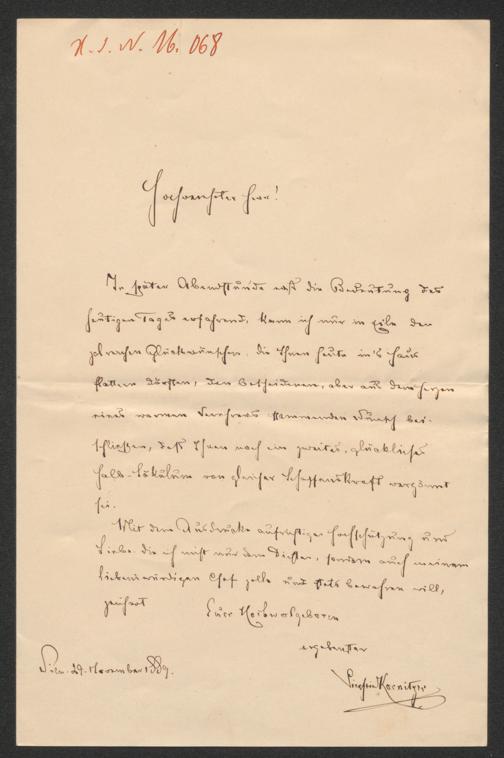 H. I. N. 16.068
Hochverehrter Herr!
In später Abendstunde erst die Bedeutung des
heutigen Tages erfahrend, kann ich nur in Eile den
zahlreichen Glückwünschen, die Ihnen heute in's Haus
flattern dürften, den bescheidenen, aber aus dem Herzen
eines warmen Verehrers stammenden Wunsch bei-
schließen, daß Ihnen noch ein zweites, glückliches
halb-Säkulum von gleicher Schaffenskraft vergönnt
sei.
Mit dem Ausdrucke aufrichtiger Hochschätzung und
Liebe, die ich nicht nur dem Dichter, sondern auch meinem
liebenswürdigen Chef zolle und stets bewahren will,
zeichnet
Euer Hochwolgeboren
ergebenster
Koenitzer
Wien. 29. November 1889.